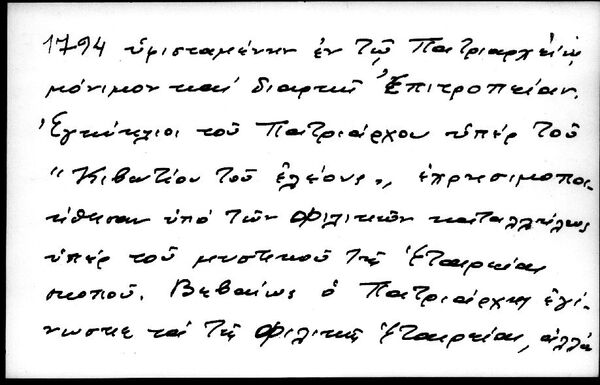 1794 ὑφισταμένην ἐν τῷ Πατριαρχείῳ
μόνιμον καί διαρκῆ Ἐπιτροπείαν.
Ἐγκύκλιοι τοῦ Πατριάρχου ὑπέρ τοῦ
"Κιβωτίου τοῦ ἐλέους", ἐχρησιμοποι-
ήθησαν ὑπό τῶν Φιλικῶν καταλλήλως
ὑπέρ τοῦ μυστικοῦ τῆς Ἑταιρείας
σκοποῦ. Βεβαίως ὁ Πατριάρχης ἐγί-
νωσκε τά τῆς Φιλικῆς Ἑταιρείας, ἀλλά